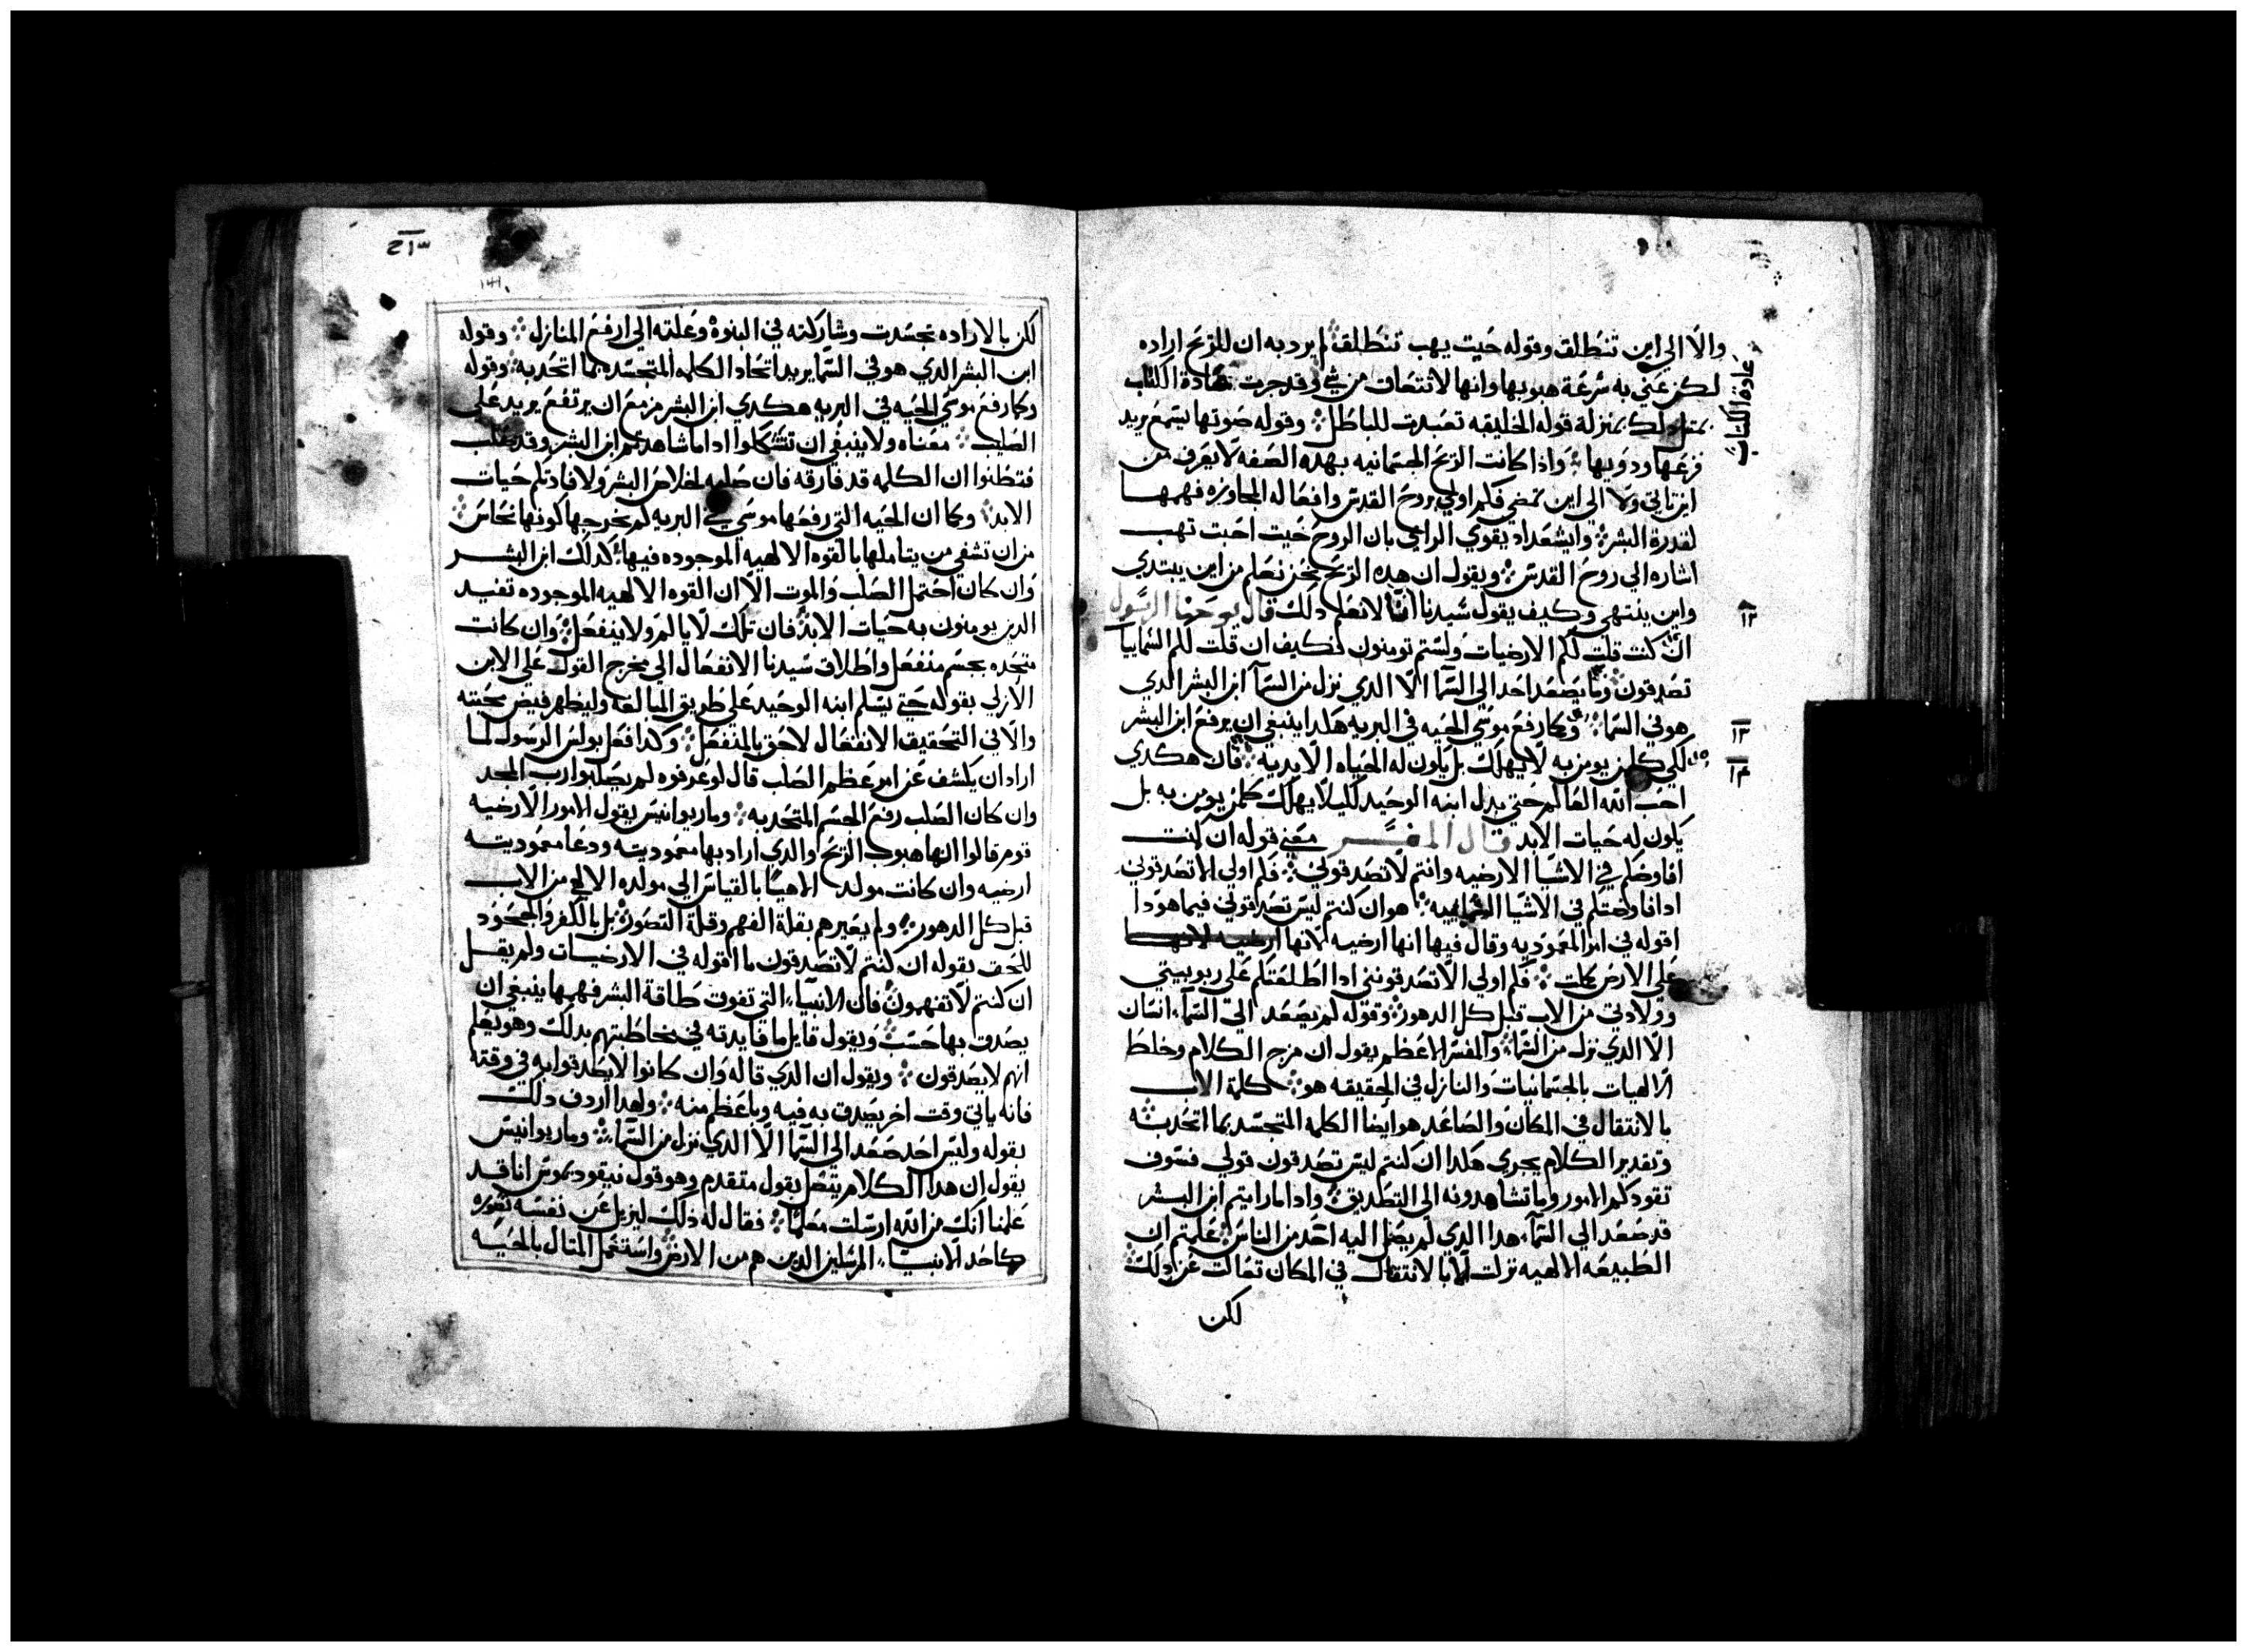 والا الي اين تنطلق وقوله حيت يهب تنطلق لم يرد به ان للريح اراده
لكن عني به سرعة هبوبها وانها لا تنعاق من شي وقد جرت عادة الكتاب
عادة الكتاب
بمتل دلك بمنزلة قوله الخليقه تعبدت للباطل وقوله صوتها يسمع يريد
قرعها ودويها واذا كانت الريح الجسمانيه بهده الصفه لا يعرف من
اين تاتي ولا الي اين تمضي فكم اولي بروح القدس وافعاله المجاوزه فهمها
لقدرة البشر وايشعداد يقوي الراي بان الروح حيت احبت تهب
اشاره الي روح القدس ويقول ان هده الريح نحن نعلم من اين يبتدي
واين ينتهي وكيف يقول سيدنا اننا لا نعلم دلك قال يوحنا الرسول
١٢
ان كنت قلت لكم الارضيات ولستم تومنون فكيف ان قلت لكم السماييات
تصدقون وما يصعد احد الي السما الا الدي نزل من السما ابن البشر الدي
١٣
هو في السما وكما رفع موسي الحيه في البريه هكدا ينبغي ان يرفع ابن البشر
١٤
لكي كلمن يومن به لا يهلك بل يكون له الحياه الابديه فان هكدي
احب الله العالم حتي بدل ابنه الوحيد لكيلا يهلك كلمن يومن به بل
يكون له حيات الابد قال المفسر معني قوله ان كنت
افاوضكم في الاشيا الارضيه وانتم لا تصدقوني فكم اولي الا تصدقوني
ادا فاوضتكم في الاشيا السماييه هو ان كنتم ليس تصدقوني فيما هودا
اقوله في امر المعموديه وقال فيها انها ارضيه لانها ارضيه لانها
علي الارض كانت فكم اولي الا تصدقونني ادا اطلعتكم علي ربوبيتي
وولادتي من الاب قبل كل الدهور وقوله لم يصعد الي السماء انسان
الا الدي نزل من السما والمفسر الاعظم يقول ان مزج الكلام وخلط
الالهيات بالجسمانيات والنازل في الحقيقه هو كلمة الاب
بالانتقال في المكان والصاعد هو ايضا الكلمه المتجسد بما اتحدت به
وتقدير الكلام يجري هكدا ان كنتم ليس تصدقون قولي فسوف
تقودكم الامور وما تشاهدونه الي التصديق وادا ما رايتم ابن البشر
قد صعد الي السماء هدا الدي لم يصل اليه احد من الناس علمتم ان
الطبيعه الالهيه نزلت لا بالانتقال في المكان تعالت عن دلك
لكن
٢١٣
١٦١
لكن بالاراده تجسدت وشاركته في البنوة وعلته الي ارفع المنازل وقوله
ابن البشر الدي هو في السما يريد اتحاد الكلمه المتجسده بما اتحد به وقوله
وكما رفع موسي الحيه في البريه هكدي ابن البشر مزمع ان يرتفع يريد علي
الصليب معناه ولا ينبغي ان تشكوا ادا ما شاهدتم ابن البشر وقد صلب
فتظنوا ان الكلمه قد فارقه فان صلبه لخلاص البشر ولافادتكم حيات
الابد وكما ان الحيه التي رفعها موسي في البريه لم يخرجها كونها نحاس
من ان تشفي من يتاملها بالقوه الالهيه الموجوده فيها كدلك ابن البشر
وان كان احتمل الصلب والموت الا ان القوه الالهيه الموجوده تفيد
الدين يومنون به حيات الابد فان تلك لا يالم ولا ينفعل وان كانت
متحده بجسم منفعل واطلاق سيدنا الانفعال الي مخرج القول علي الابن
الازلي بقوله حتي يسلم ابنه الوحيد علي طريق المبالغه وليظهر فيض محبته
والا في التحقيق الانفعال لاحق بالمنفعل وكدا فعل بولس الرسول لما
اراد ان يكشف عن امر عظم الصلب قال لو عرفوه لم يصلبوا رب المجد
وان كان الصلب رفع الجسم المتحد به وماريوانيس يقول الامور الارضيه
قوم قالوا انها هبوب الريح والدي اراد بها معموديته ودعا معموديته
ارضيه وان كانت مولد الاهيا بالقياس الي مولده الالهي من الاب
قبل كل الدهور ولم يعيرهم بقلة الفهم وقلة التصور بل بالكفر والجحود
للحق بقوله ان كنتم لا تصدقون ما اقوله في الارضيات ولم يقل
ان كنتم لا تفهمون فان الاشياء التي تفوت طاقة البشر فهمها ينبغي ان
يصدق بها حسب ويقول قايل ما فايدته في مخاطبتهم بدلك وهو يعلم
انهم لا يصدقون ويقول ان الدي قاله وان كانوا لا يصدقوا به في وقته
فانه ياتي وقت اخر يصدق به فيه وباعظم منه ولهدا اردف دلك
بقوله وليس احد صعد الي السما الا الدي نزل من السماء وماريوانيس
يقول ان هدا الكلام يتصل بقول متقدم وهو قول نيقوديموس انا قد
علمنا انك من الله ارسلت معلما فقال له ذلك ليزيل عن نفسه تصوره
كاحد الانبياء المرسلين الدين هم من الارض واستعمل المتال بالحيه